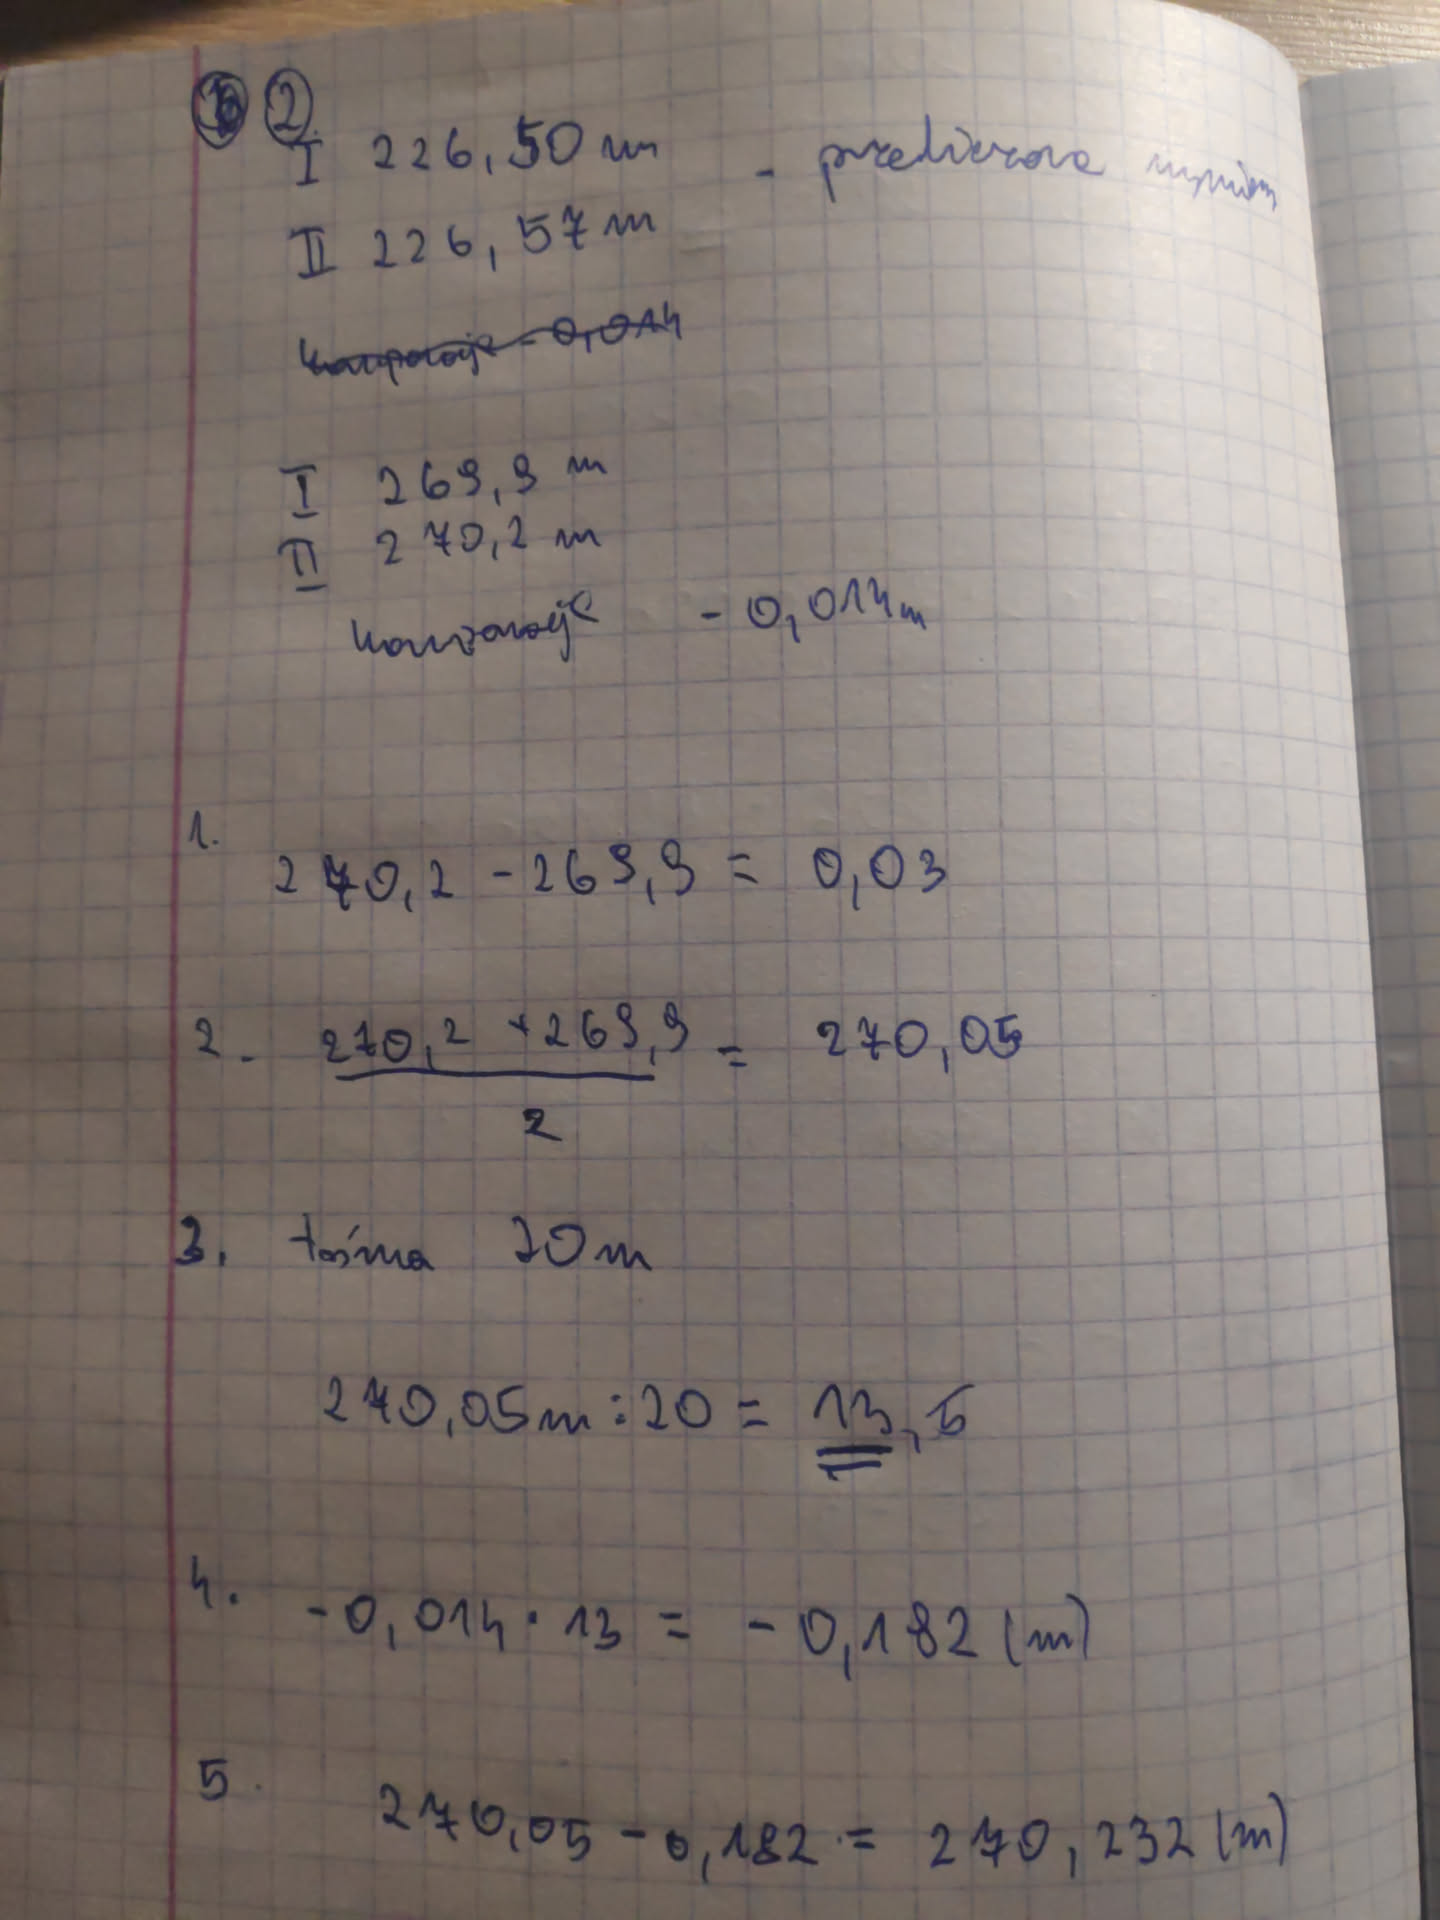 2
I 226,50 m - przeliczona
II 226,57 m
- 0,014
I 269,9 m
II 270,2 m
- 0,014 m
1.
270,2 - 269,9 = 0,03
2. 270,2 + 269,9 = 270,05
2
3. taśma 20 m
270,05 m : 20 = 13,5
4. - 0,014 · 13 = - 0,182 (m)
5. 270,05 - 0,182 = 270,232 (m)